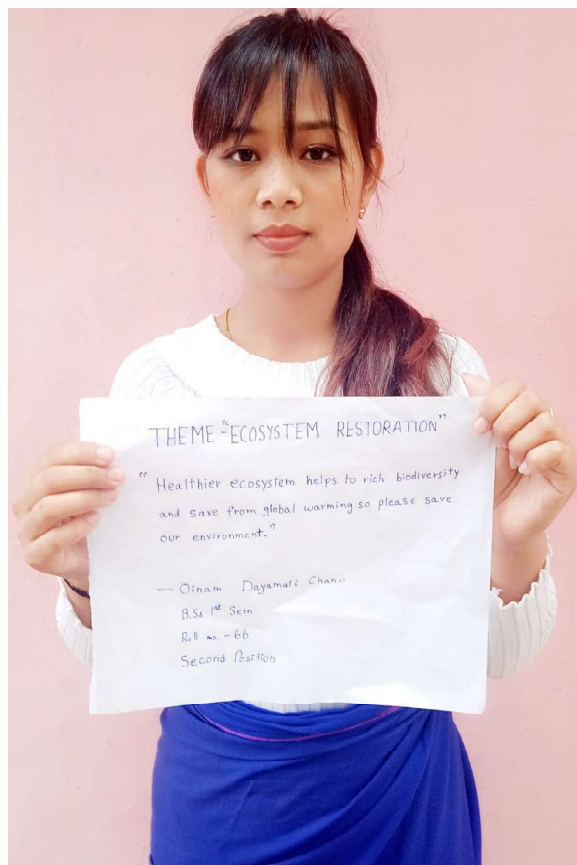 THEME - "ECOSYSTEM RESTORATION"
" Healthier ecosystem helps to rich biodiversity
and save from global warming so please save
our environment."
— Oinam Dayamati Chanu
B.Sc 1st Sem
Roll no. - 66
Second Position